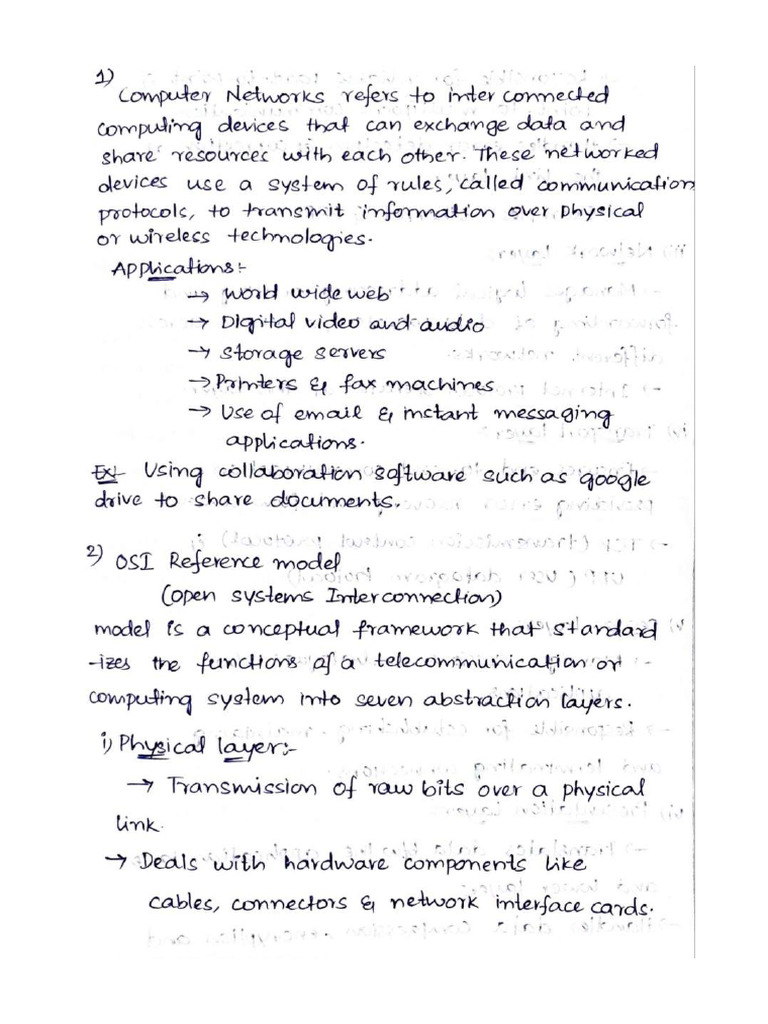 1)
Computer Networks refers to inter connected
computing devices that can exchange data and
share resources with each other. These networked
devices use a system of rules, called communication
protocols, to transmit information over physical
or wireless technologies.
Applications:-
→ World wide web
→ Digital video and audio
→ Storage servers
→ Printers & fax machines
→ Use of email & instant messaging
applications.
Ex:- Using collaboration software such as google
drive to share documents.
2) OSI Reference model
(open systems Interconnection)
model is a conceptual framework that standard
-izes the functions of a telecommunication or
computing system into seven abstraction layers.
i) Physical layer:-
→ Transmission of raw bits over a physical
link.
→ Deals with hardware components like
cables, connectors & network interface cards.